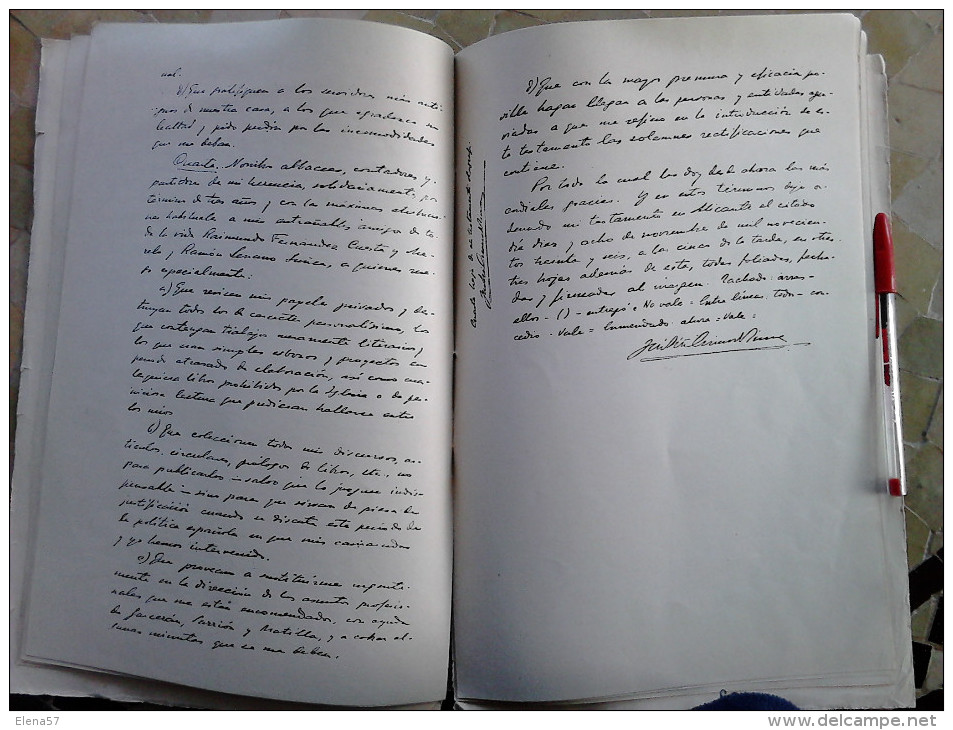 ual.
8) Que prohijuen a los servidores más anti-
guos de nuestra casa, a los que agradezco su
lealtad y pido perdón por las incomodidades
que me deban.
Cuarta. Nombro albaceas, contadores y
partidores de mi herencia, solidariamente, por
término de tres años y con las máximas atribucio-
nes habituales a mis entrañables amigos de to-
da la vida Raimundo Fernández Cuesta y Me-
relo y Ramón Serrano Suñer, a quienes rue-
go especialmente:
a) Que revisen mis papeles privados y des-
truyan todos los de carácter personalísimo, los
que contengan trabajos meramente literarios y
los que sean simples esbozos y proyectos en
período atrasado de elaboración, así como cua-
lesquiera libros prohibidos por la Iglesia o de per-
niciosa lectura que pudieran hallarse entre
los míos
b) Que coleccionen todos mis discursos, ar-
tículos, circulares, prólogos de libros, etc., no
para publicarlos – salvo que lo juzguen indis-
pensable – sino para que sirvan de pieza de
justificación cuando se discuta este período de
la política española en que mis camaradas
y yo hemos intervenido.
c) Que provean a sustituirme urgente-
mente en la dirección de los asuntos profesio-
nales que me están encomendados, con ayuda
de Garcerán, Sarrión y Matilla, y a cobrar al-
gunas minutas que se me deben.
hoja de mi testamento
d) Que con la mayor premura y eficacia po-
sible hagan llegar a las personas y entidades agra-
viadas a que me refiero en la introducción de es-
te testamento las solemnes rectificaciones que
contiene.
Por todo lo cual les doy desde ahora las más
cordiales gracias. Y en estos términos dejo or-
denado mi testamento en Alicante el citado
día diez y ocho de noviembre de mil novecien-
tos treinta y seis, a las cinco de la tarde, en otras
tres hojas además de esta, todas foliadas, fecha-
das y firmadas al margen. Tachado: arras-
ellos - () - entregó = No vale = Entre líneas: todo - con-
cedio - Vale = Enmendado: ahora = Vale =
José Antonio Primo de Rivera
Elena57
www.delcampe.net